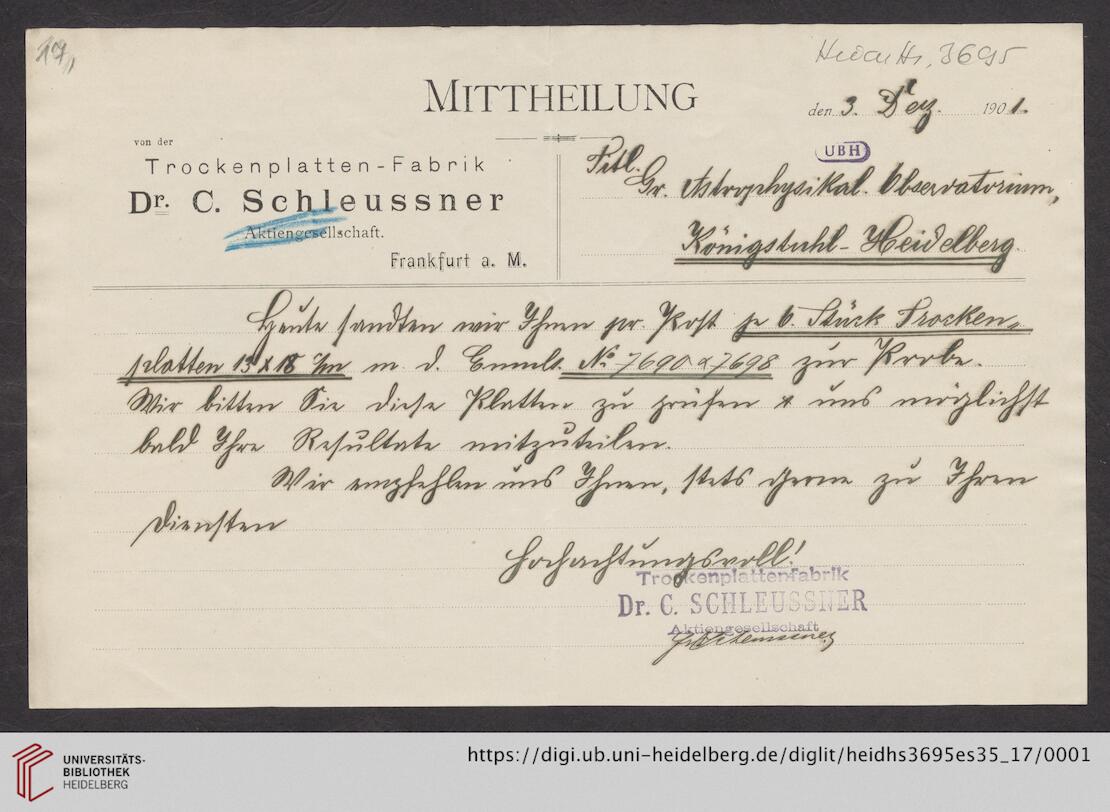 17,,
Heid. Hs. 3695
MITTHEILUNG
den 3. Dez. 1901.
von der
Trockenplatten-Fabrik
Dr. C. Schleussner
Aktiengesellschaft.
Frankfurt a. M.
UBH
Titl.
Gr. Astrophysikal. Observatorium,
Königstuhl-Heidelberg.
Heute sandten wir Ihnen pr. Post je 6 Stück Trocken-
platten 13 x 18 c/m m. d. Emuls. No 7690 & 7698 zur Probe.
Wir bitten Sie diese Platten zu prüfen & uns möglichst
bald Ihre Resultate mitzuteilen.
Wir empfehlen uns Ihnen, stets gerne zu Ihren
Diensten
Hochachtungsvoll!
Trockenplattenfabrik
Dr. C. SCHLEUSSNER
Aktiengesellschaft
UNIVERSITÄTS-
BIBLIOTHEK
HEIDELBERG
https://digi.ub.uni-heidelberg.de/diglit/heidhs3695es35_17/0001